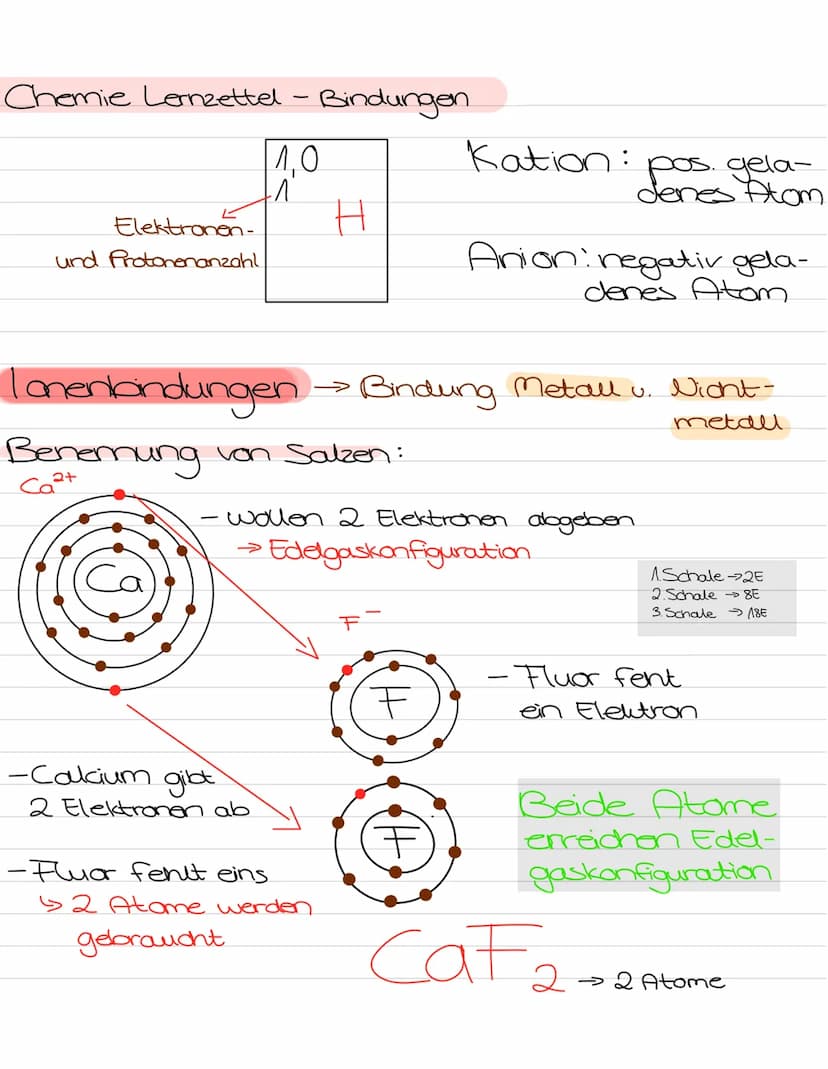 Chemie Lernzettel - Bindungen
1,0
1
H
Elektronen-
und Protonenanzahl
Kation: pos. gela-
denes Atom
Anion: negativ gela-
denes Atom
Ionenbindungen → Bindung Metall u. Nicht-
metall
Benennung von Salzen:
Ca2+
Ca
- wollen 2 Elektronen abgeben
→ Edelgaskonfiguration
1. Schale → 2E
2. Schale → 8E
3. Schale → 18E
F-
F
- Fluor fehlt
ein Elektron
- Calcium gibt
2 Elektronen ab
F
Beide Atome
erreichen Edel-
gaskonfiguration
- Fluor fehlt eins
↳ 2 Atome werden
gebraucht
CaF2 → 2 Atome